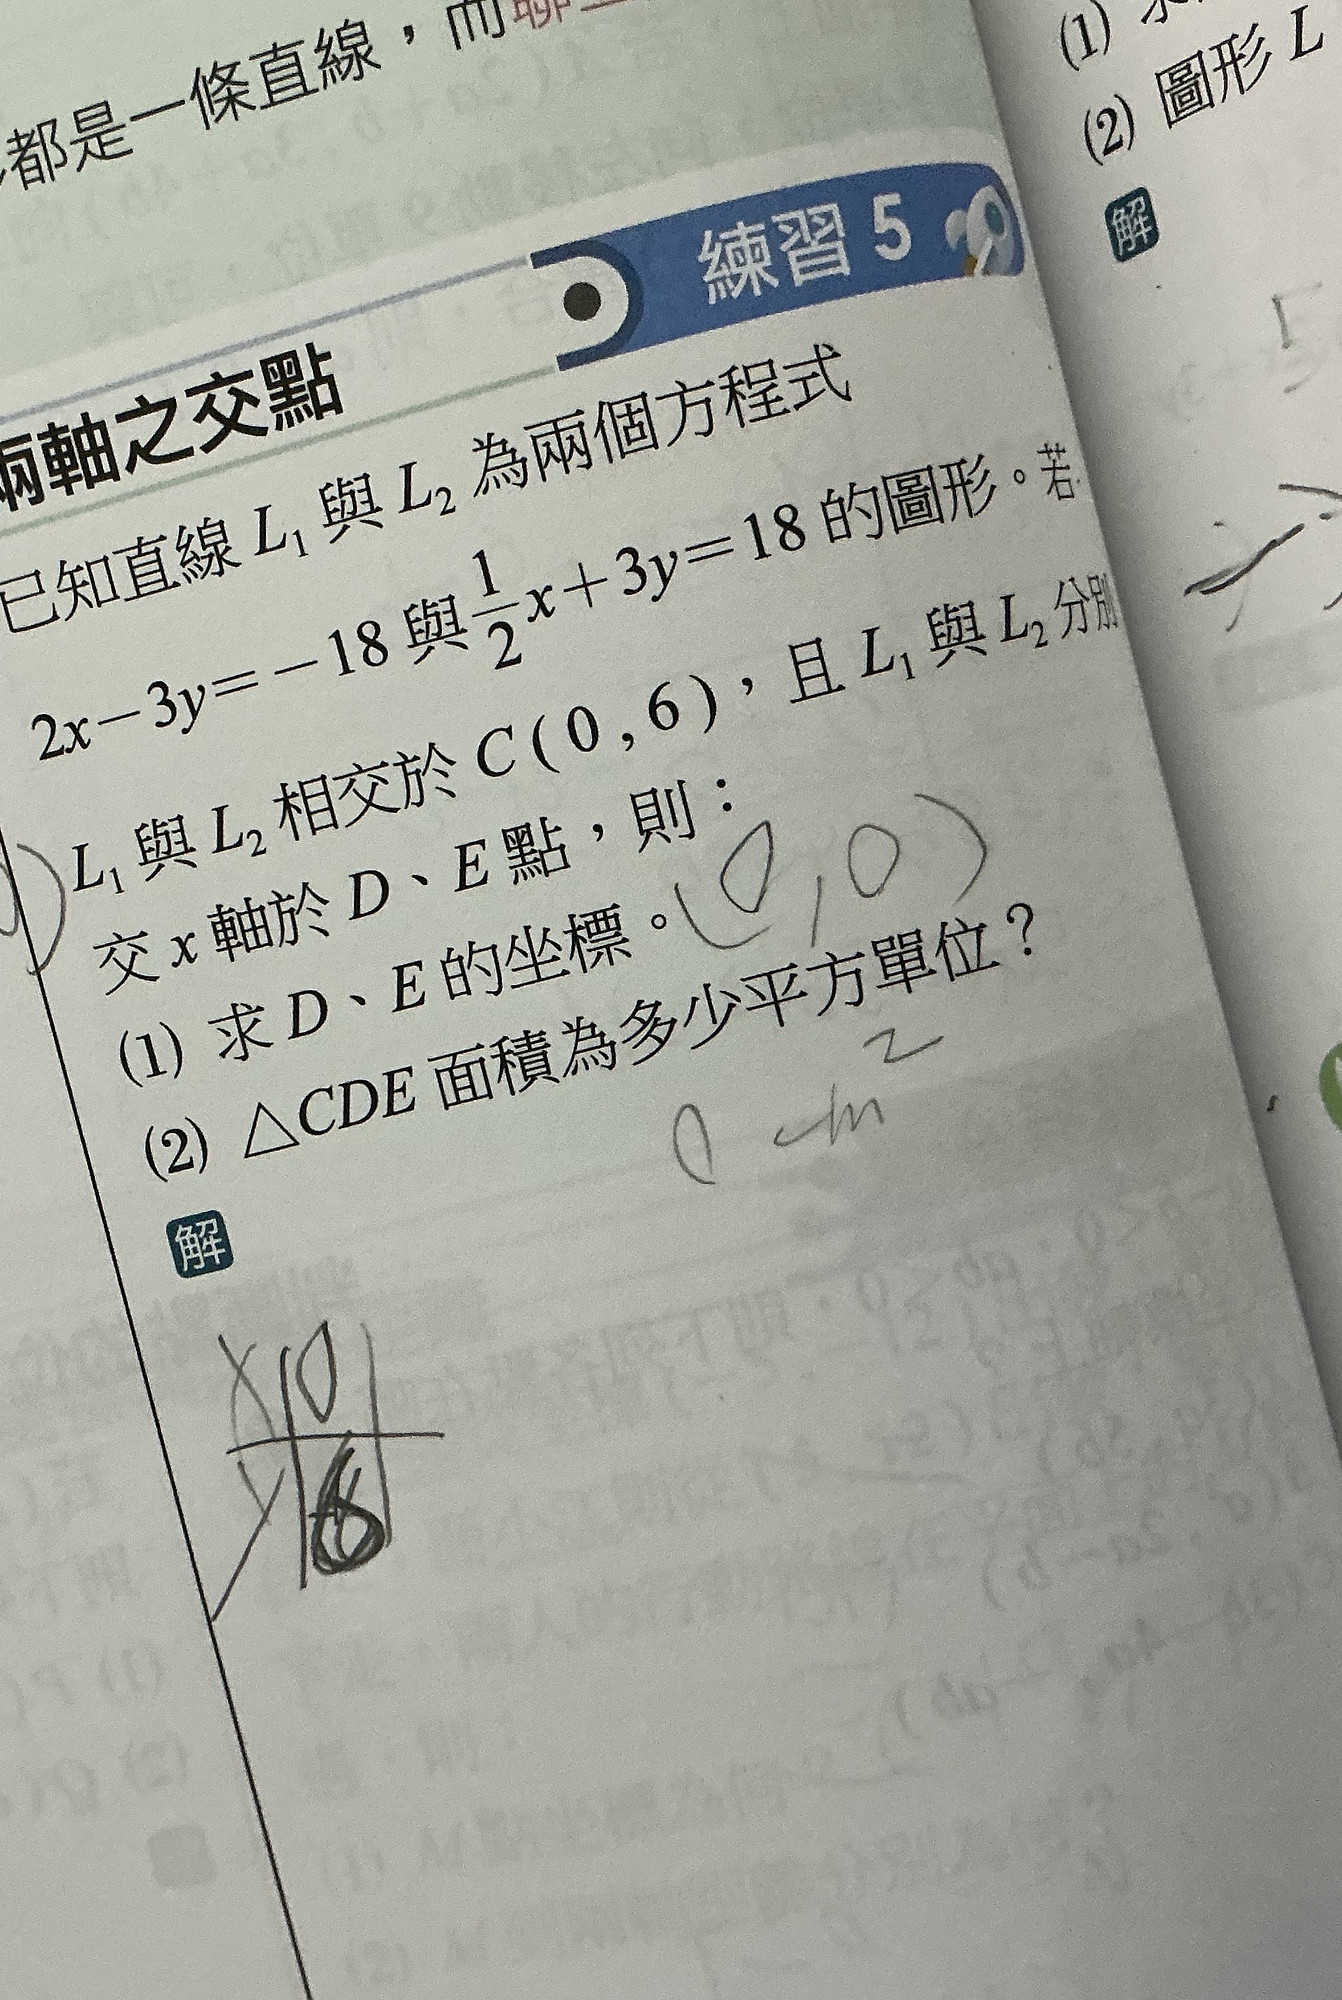 都是一條直線，而
練習 5
兩軸之交點
已知直線 L₁ 與 L₂ 為兩個方程式
2x－3y＝－18 與 1/2 x＋3y＝18 的圖形。若
L₁ 與 L₂ 相交於 C ( 0 , 6 )，且 L₁ 與 L₂ 分別
交 x 軸於 D、E 點，則：
(1) 求 D、E 的坐標。(0,0)
(2) △CDE 面積為多少平方單位？
0 cm²
解
x 0
y 6
(1)
(2) 圖形 L
解